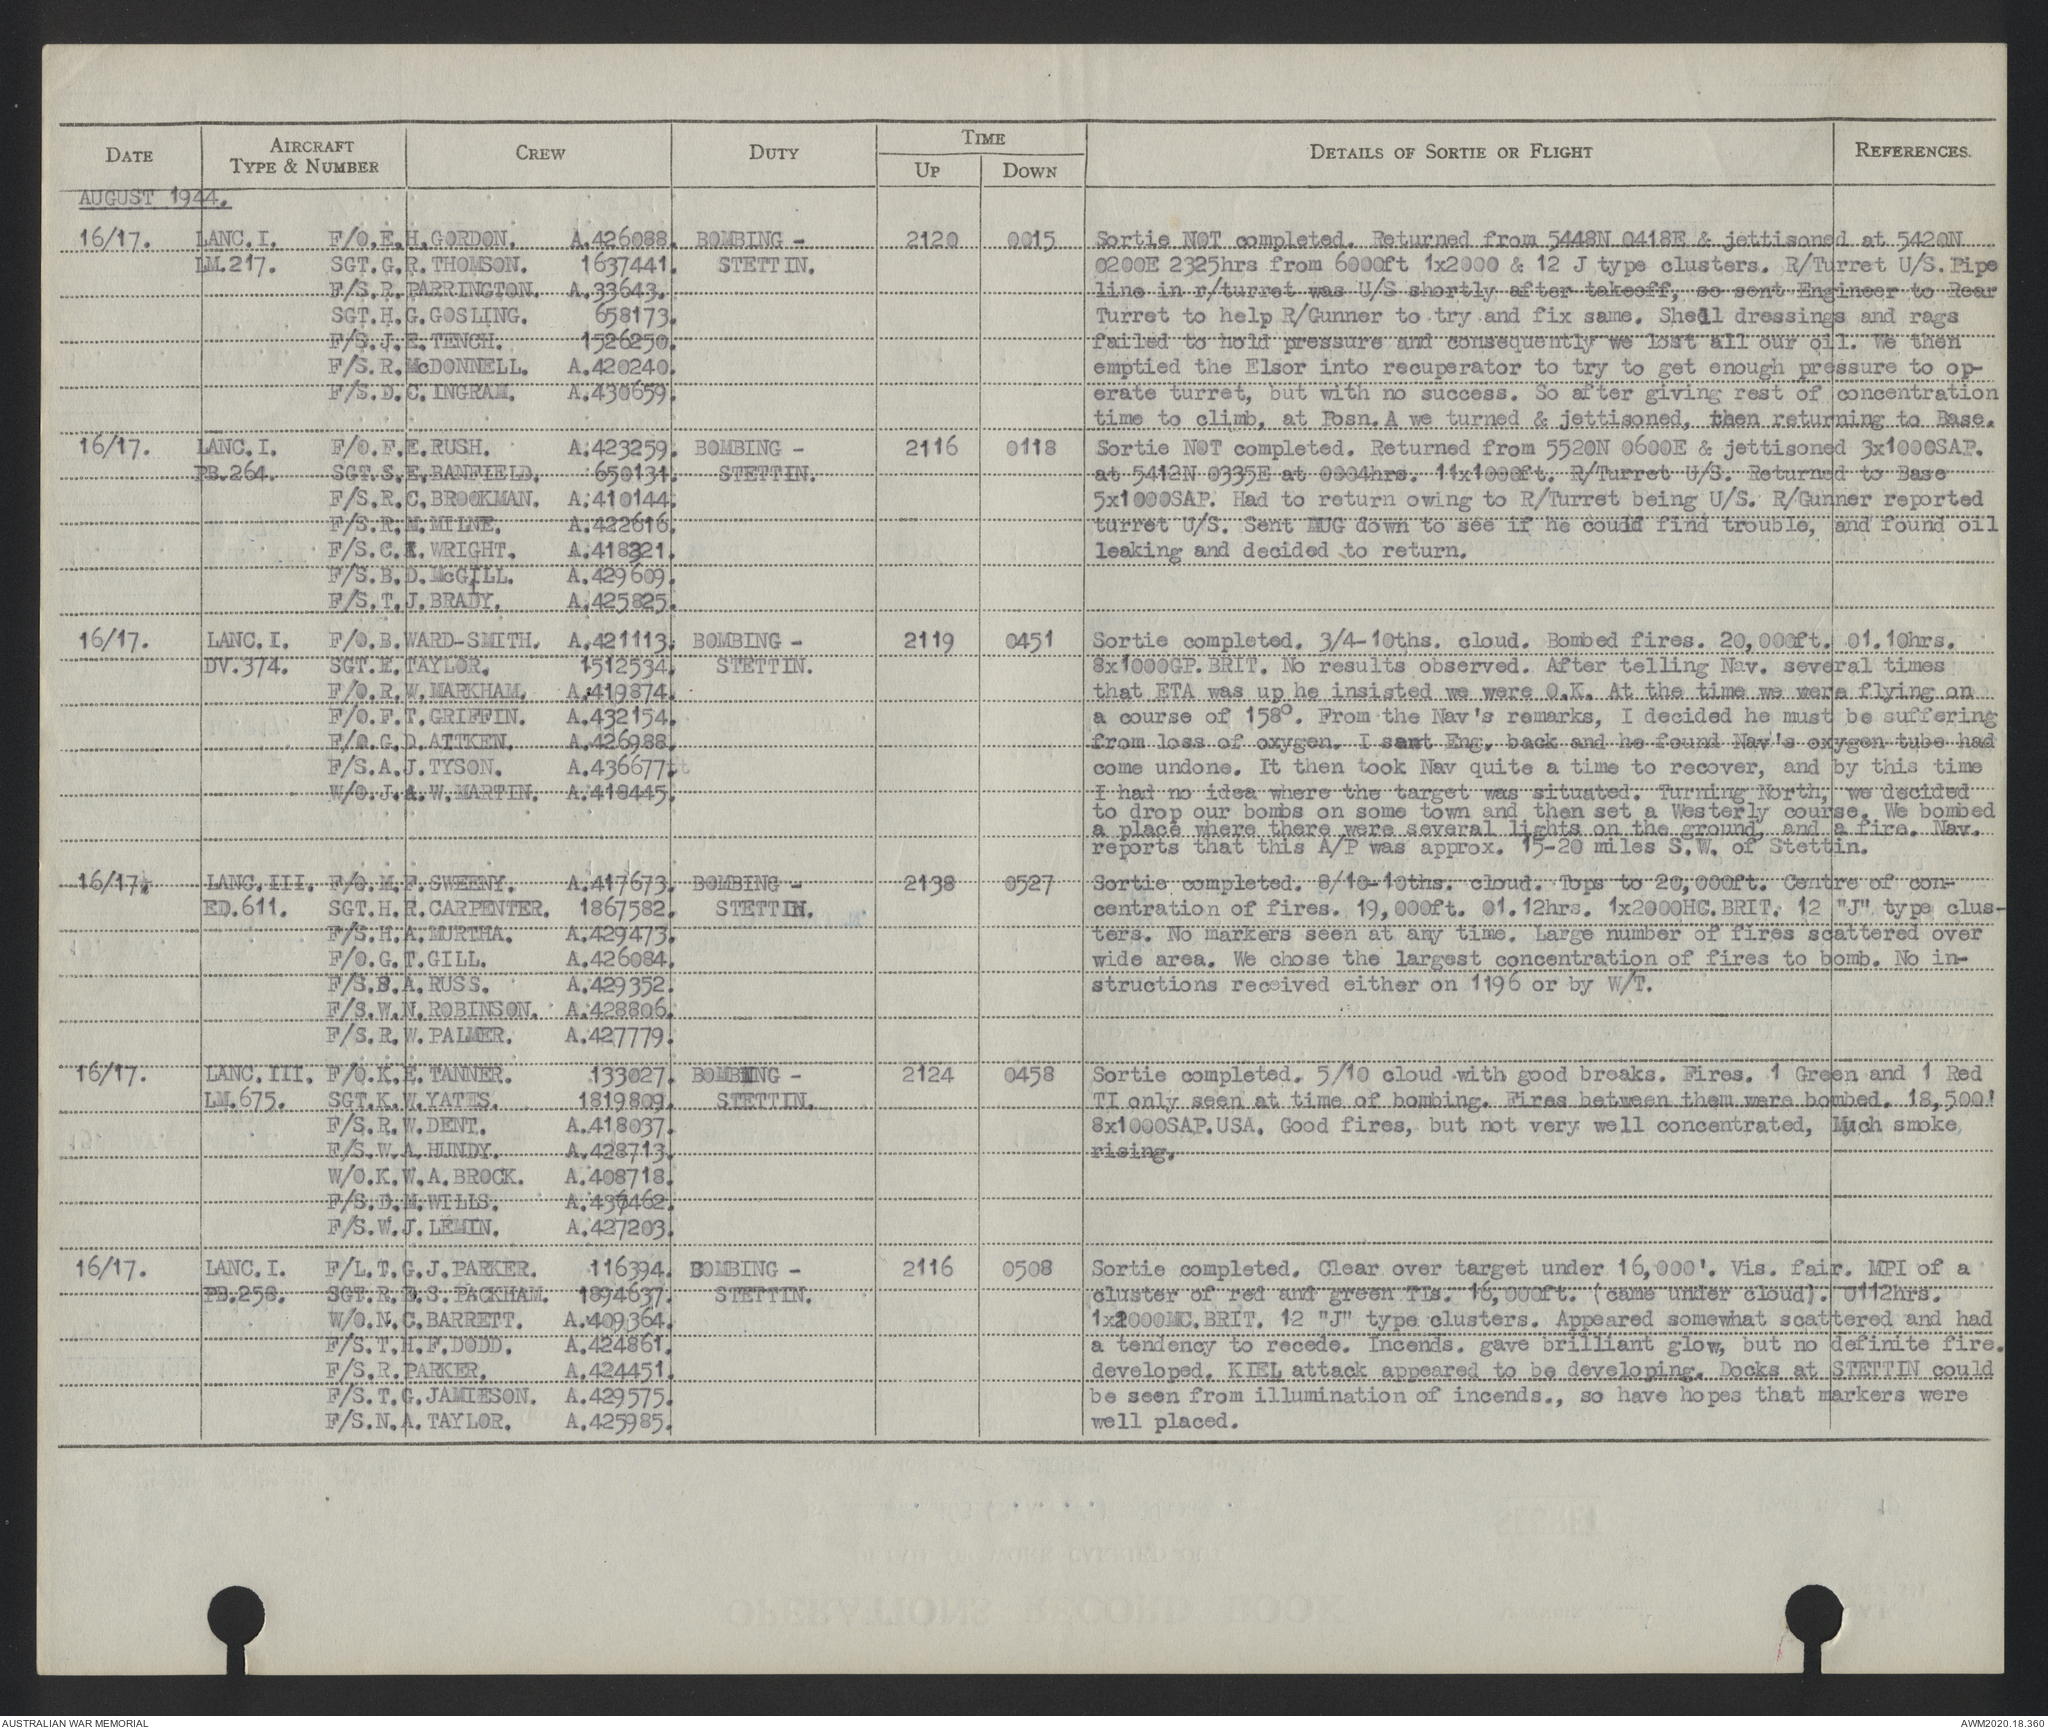 DATE AIRCRAFT TYPE & NUMBER CREW DUTY TIME UP DOWN DETAILS OF SORTIE OR FLIGHT REFERENCES.
AUGUST 1944.
16/17. LANC.I. F/O.E.H.GORDON. A.426088. BOMBING - 2120 0015 Sortie NOT completed. Returned from 5448N 0418E & jettisoned at 5420N
LM.217. SGT.G.R.THOMSON. 1637441. STETTIN. 0200E 2325hrs from 6000ft 1x2000 & 12 J type clusters. R/Turret U/S. Pipe
F/S.R.PARRINGTON. A.33643. line in r/turret was U/S shortly after takeoff, so sent Engineer to Rear
SGT.H.G.GOSLING. 658173. Turret to help R/Gunner to try and fix same. Shell dressings and rags
F/S.J.E.TENCH. 1526250. failed to hold pressure and consequently we lost all our oil. We then
F/S.R.McDONNELL. A.420240. emptied the Elsor into recuperator to try to get enough pressure to op-
F/S.D.C.INGRAM. A.430659. erate turret, but with no success. So after giving rest of concentration
time to climb, at Posn.A we turned & jettisoned, then returning to Base.
16/17. LANC.I. F/O.F.E.RUSH. A.423259. BOMBING - 2116 0118 Sortie NOT completed. Returned from 5520N 0600E & jettisoned 3x1000SAP.
PB.264. SGT.S.E.BANFIELD. 650131. STETTIN. at 5412N 0335E at 0004hrs. 11x1000ft. R/Turret U/S. Returned to Base
F/S.R.C.BROOKMAN. A.410144. 5x1000SAP. Had to return owing to R/Turret being U/S. R/Gunner reported
F/S.R.M.MILNE. A.422616. turret U/S. Sent MUG down to see if he could find trouble, and found oil
F/S.C. WRIGHT. A.418321. leaking and decided to return.
F/S.B.D.McGILL. A.429609.
F/S.T.J.BRADY. A.425825.
16/17. LANC.I. F/O.B.WARD-SMITH. A.421113. BOMBING - 2119 0451 Sortie completed. 3/4-10ths. cloud. Bombed fires. 20,000ft. 01.10hrs.
DV.374. SGT.E.TAYLOR. 1512534. STETTIN. 8x1000GP.BRIT. No results observed. After telling Nav. several times
F/O.R.W.MARKHAM. A.419874. that ETA was up he insisted we were O.K. At the time we were flying on
F/O.F.T.GRIFFIN. A.432154. a course of 158°. From the Nav's remarks, I decided he must be suffering
F/O.G.D.AITKEN. A.426988. from loss of oxygen. I sent Eng. back and he found Nav's oxygen tube had
F/S.A.J.TYSON. A.436677. come undone. It then took Nav quite a time to recover, and by this time
W/O.J.A.W.MARTIN. A.418445. I had no idea where the target was situated. Turning North, we decided
to drop our bombs on some town and then set a Westerly course. We bombed
a place where there were several lights on the ground, and a fire. Nav.
reports that this A/P was approx. 15-20 miles S.W. of Stettin.
16/17. LANC.III. F/O.M.F.SWEENY. A.417673. BOMBING - 2138 0527 Sortie completed. 8/10-10ths. cloud. Tops to 20,000ft. Centre of con-
ED.611. SGT.H.R.CARPENTER. 1867582. STETTIN. centration of fires. 19,000ft. 01.12hrs. 1x2000HC.BRIT. 12 "J" type clus-
F/S.H.A.MURTHA. A.429473. ters. No markers seen at any time. Large number of fires scattered over
F/O.G.T.GILL. A.426084. wide area. We chose the largest concentration of fires to bomb. No in-
F/S.S.A.RUSS. A.429352. structions received either on 1196 or by W/T.
F/S.W.N.ROBINSON. A.428806.
F/S.R.W.PALMER. A.427779.
16/17. LANC.III. F/O.K.E.TANNER. 133027. BOMBING - 2124 0458 Sortie completed. 5/10 cloud with good breaks. Fires. 1 Green and 1 Red
LM.675. SGT.K.W.YATES. 1819809. STETTIN. TI only seen at time of bombing. Fires between them were bombed. 18,500'
F/S.R.W.DENT. A.418037. 8x1000SAP.USA. Good fires, but not very well concentrated, Much smoke
F/S.W.A.HUNDY. A.428713. rising.
W/O.K.W.A.BROCK. A.408718.
F/S.D.M.WILLS.
F/S.W.J.LEMIN. A.427203.
16/17. LANC.I. F/L.T.G.J.PARKER. 116394. BOMBING - 2116 0508 Sortie completed. Clear over target under 16,000'. Vis. fair. MPI of a
PB.258. SGT.R.E.S.PACKHAM. 1894637. STETTIN. cluster of red and green TIs. 16,000ft. (came under cloud). 0112hrs.
W/O.N.C.BARRETT. A.409364. 1x2000MC.BRIT. 12 "J" type clusters. Appeared somewhat scattered and had
F/S.T.H.F.DODD. A.424861. a tendency to recede. Incends. gave brilliant glow, but no definite fire.
F/S.R.PARKER. A.424451. developed. KIEL attack appeared to be developing. Docks at STETTIN could
F/S.T.G.JAMIESON. A.429575. be seen from illumination of incends., so have hopes that markers were
F/S.N.A.TAYLOR. A.425985. well placed.
AUSTRALIAN WAR MEMORIAL AWM2020.18.360